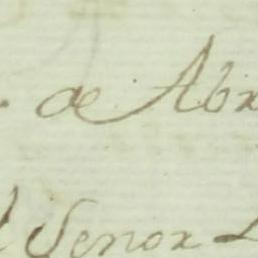 de Abr
Senor